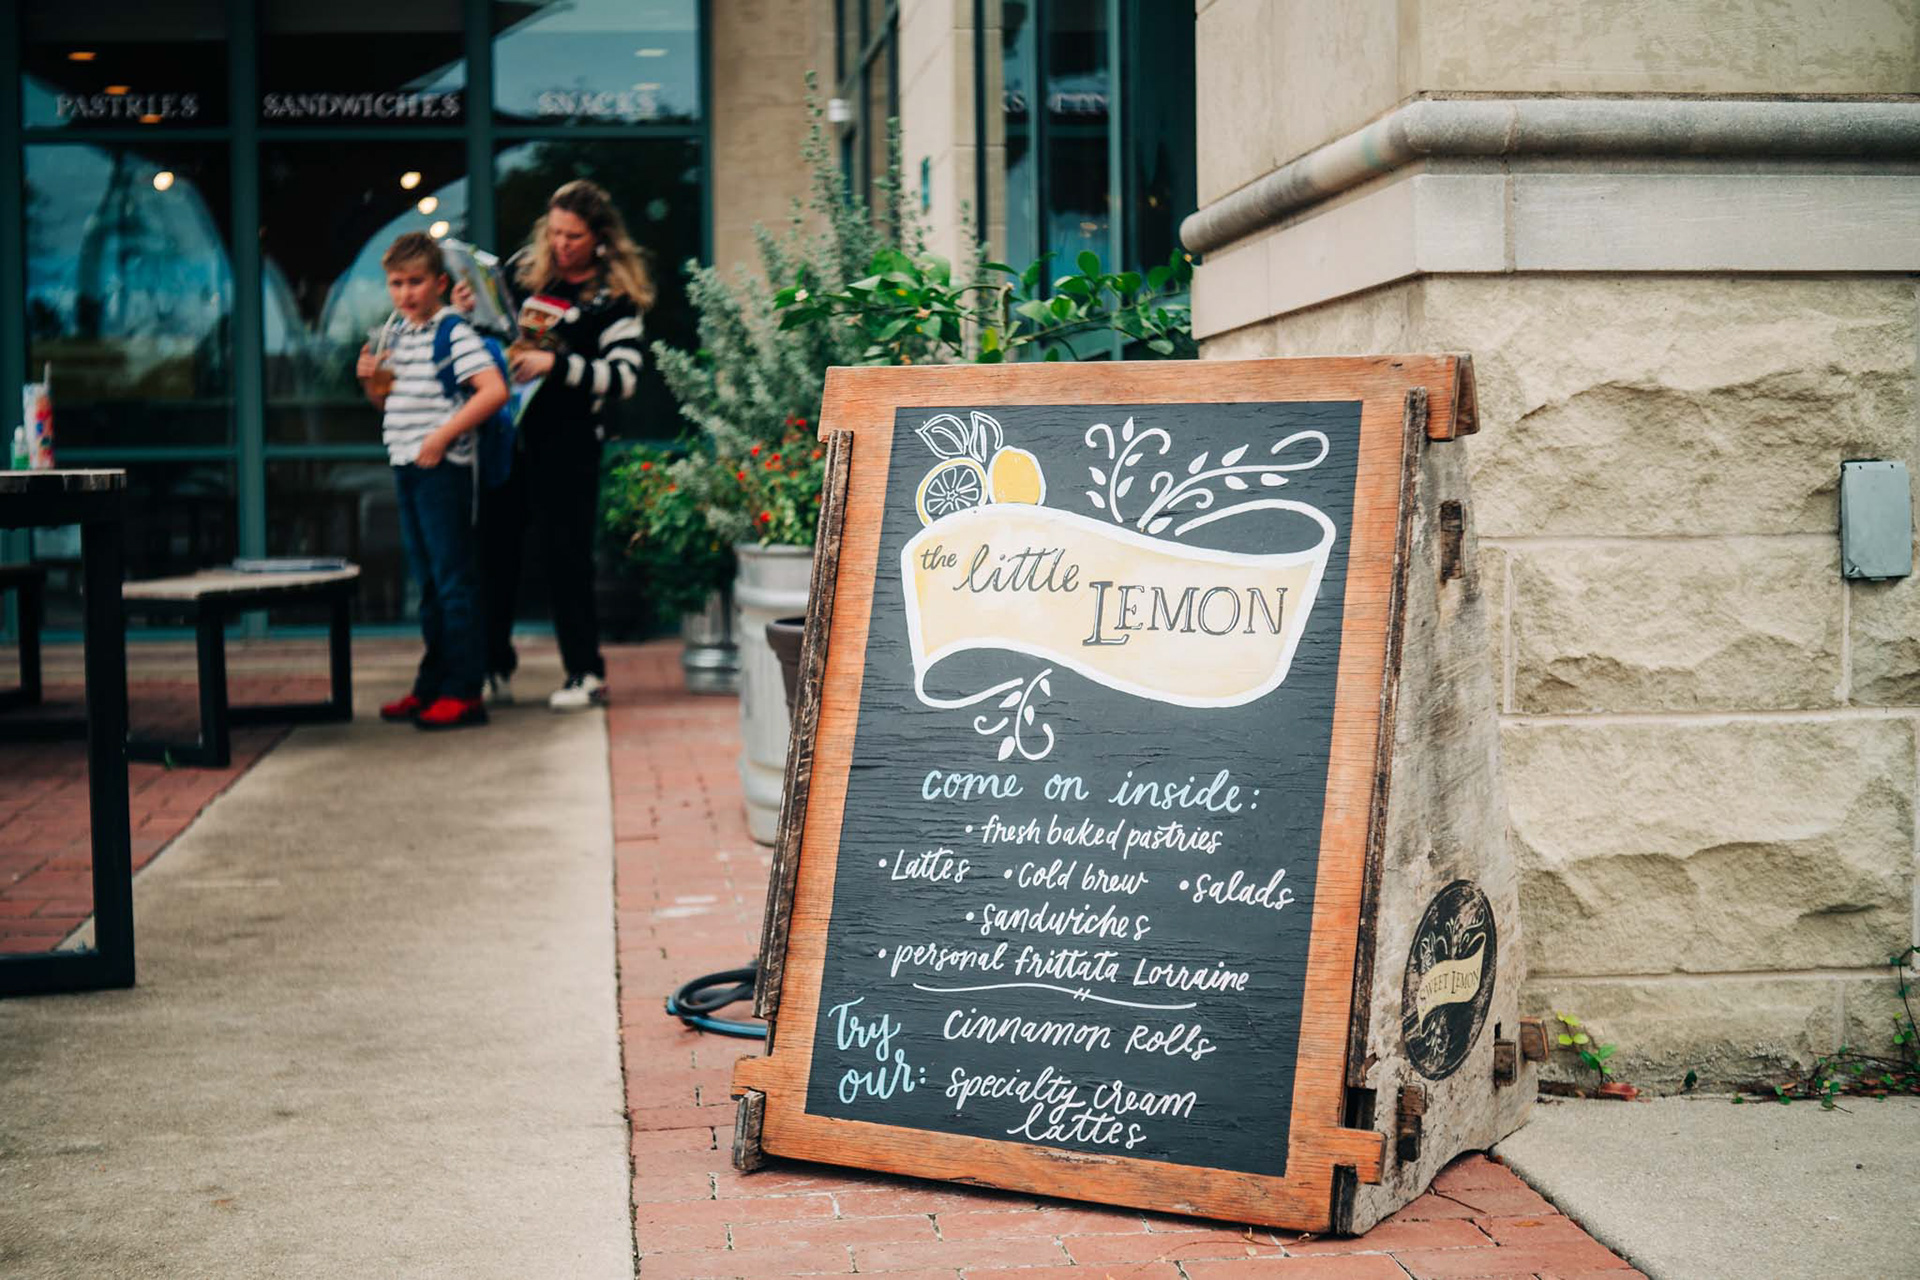 PASTRIES SANDWICHES SNACKS
the little LEMON
come on inside:
• fresh baked pastries
• Lattes • Cold brew • Salads
• Sandwiches
• personal frittata Lorraine
Try our: Cinnamon Rolls
Specialty Cream
Lattes
SWEET LEMON